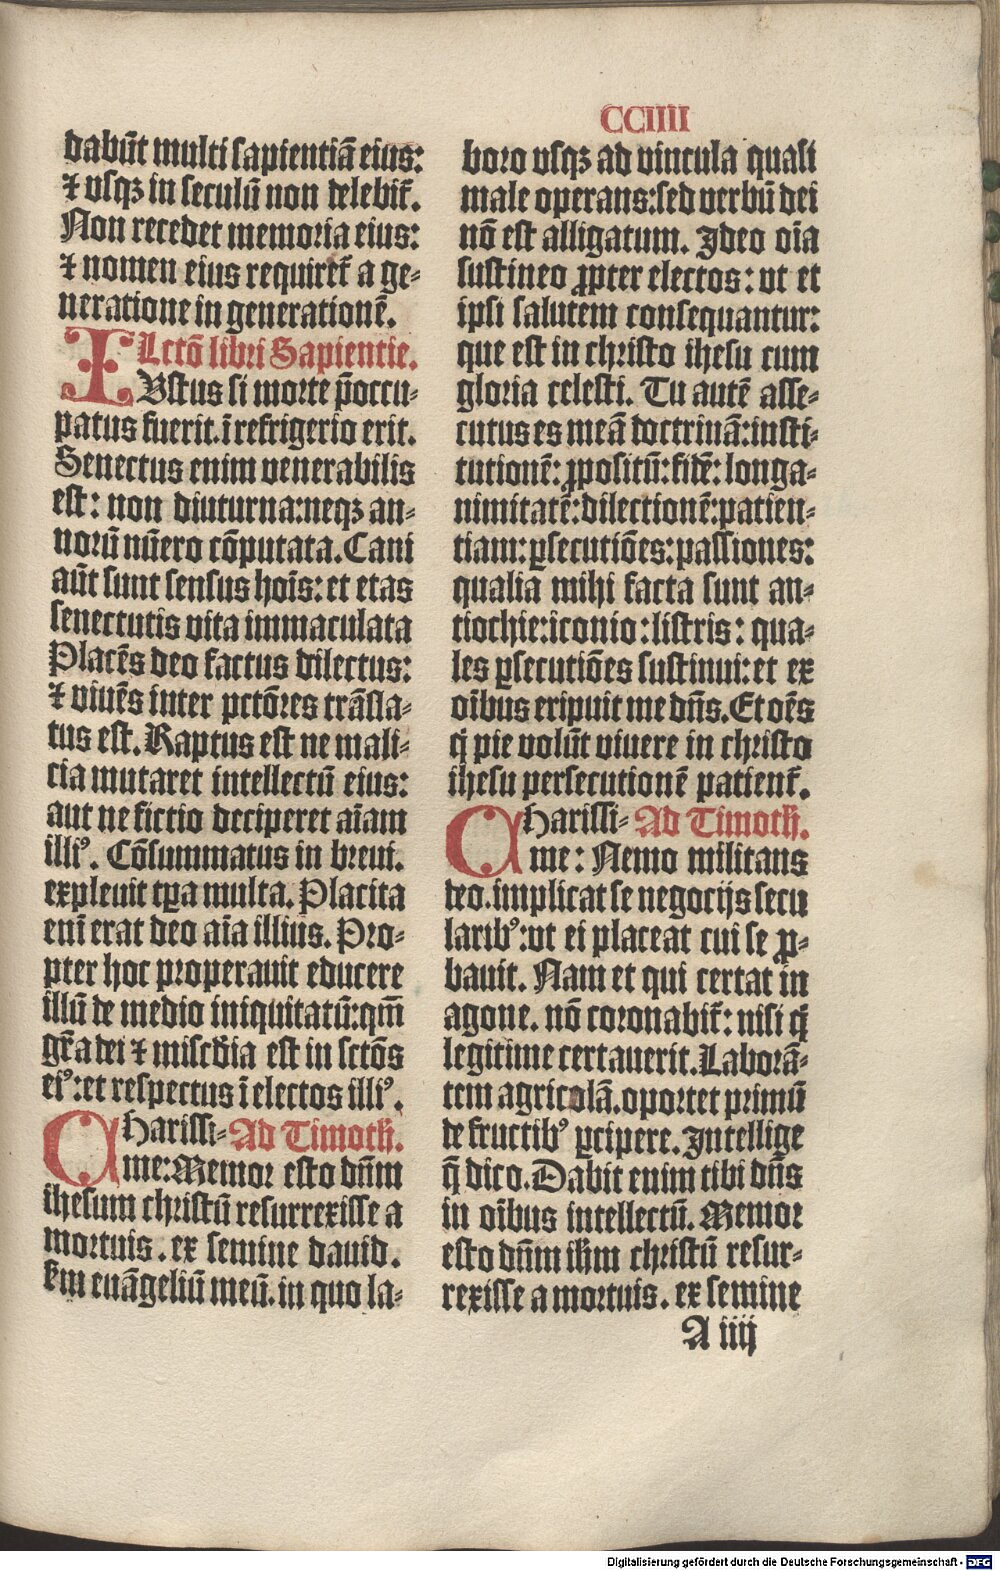 CCIIII
dabūt multi sapientiā eius:
⁊ vsqꝫ in seculū non delebit̄.
Non recedet memoria eius:
⁊ nomen eius requiret̄ a ge-
neratione in generationē.
Lctō libri Sapientie.
IVstus si morte p̄occu-
patus fuerit. ī refrigerio erit.
Senectus enim venerabilis
est: non diuturna: neqꝫ an-
norū nūero cōputata. Cani
aūt sunt sensus hoīs: et etas
senectutis vita immaculata
Placēs deo factus dilectus:
⁊ viuēs inter pctōres trāsla-
tus est. Raptus est ne mali-
cia mutaret intellectū eius:
aut ne fictio deciperet aīam
illiꝰ. Cōsummatus in breui.
expleuit tꝑa multa. Placita
enī erat deo aīa illius. Pro-
pter hoc properauit educere
illū de medio iniquitatū: qm̄
gr̄a dei ⁊ misc̄dia est in sctōs
eiꝰ: et respectus ī electos illiꝰ.
CHarissi- Ad Timoth̄.
me: Memor esto dn̄m
ihesum christū resurrexisse a
mortuis. ex semine dauid.
km̄ euāgeliū meū. in quo la-
boro vsqꝫ ad vincula quasi
male operans: sed verbū dei
nō est alligatum. Ideo oīa
sustineo ꝓpter electos: vt et
ipsi salutem consequantur:
que est in christo ihesu cum
gloria celesti. Tu autē asse-
cutus es meā doctrinā: insti-
tutionē: ꝓpositū: fidē: longa-
nimitatē: dilectionē: patien-
tiam: ꝑsecutiōes: passiones:
qualia mihi facta sunt an-
tiochie: iconio: listris: qua-
les ꝑsecutiōes sustinui: et ex
oībus eripuit me dn̄s. Et oēs
q̄ pie volūt viuere in christo
ihesu persecutionē patient̄.
CHarissi- Ad Timoth̄.
me: Nemo militans
deo. implicat se negocijs secu
laribꝰ: vt ei placeat cui se ꝓ-
bauit. Nam et qui certat in
agone. nō coronabit̄: nisi q̄
legitime certauerit. Laborā-
tem agricolā. oportet primū
de fructibꝰ ꝑcipere. Intellige
q̄ dico. Dabit enim tibi dn̄s
in oībus intellectū. Memor
esto dn̄m ih̄m christū resur-
rexisse a mortuis. ex semine
A iiij
Digitalisierung gefördert durch die Deutsche Forschungsgemeinschaft - DFG